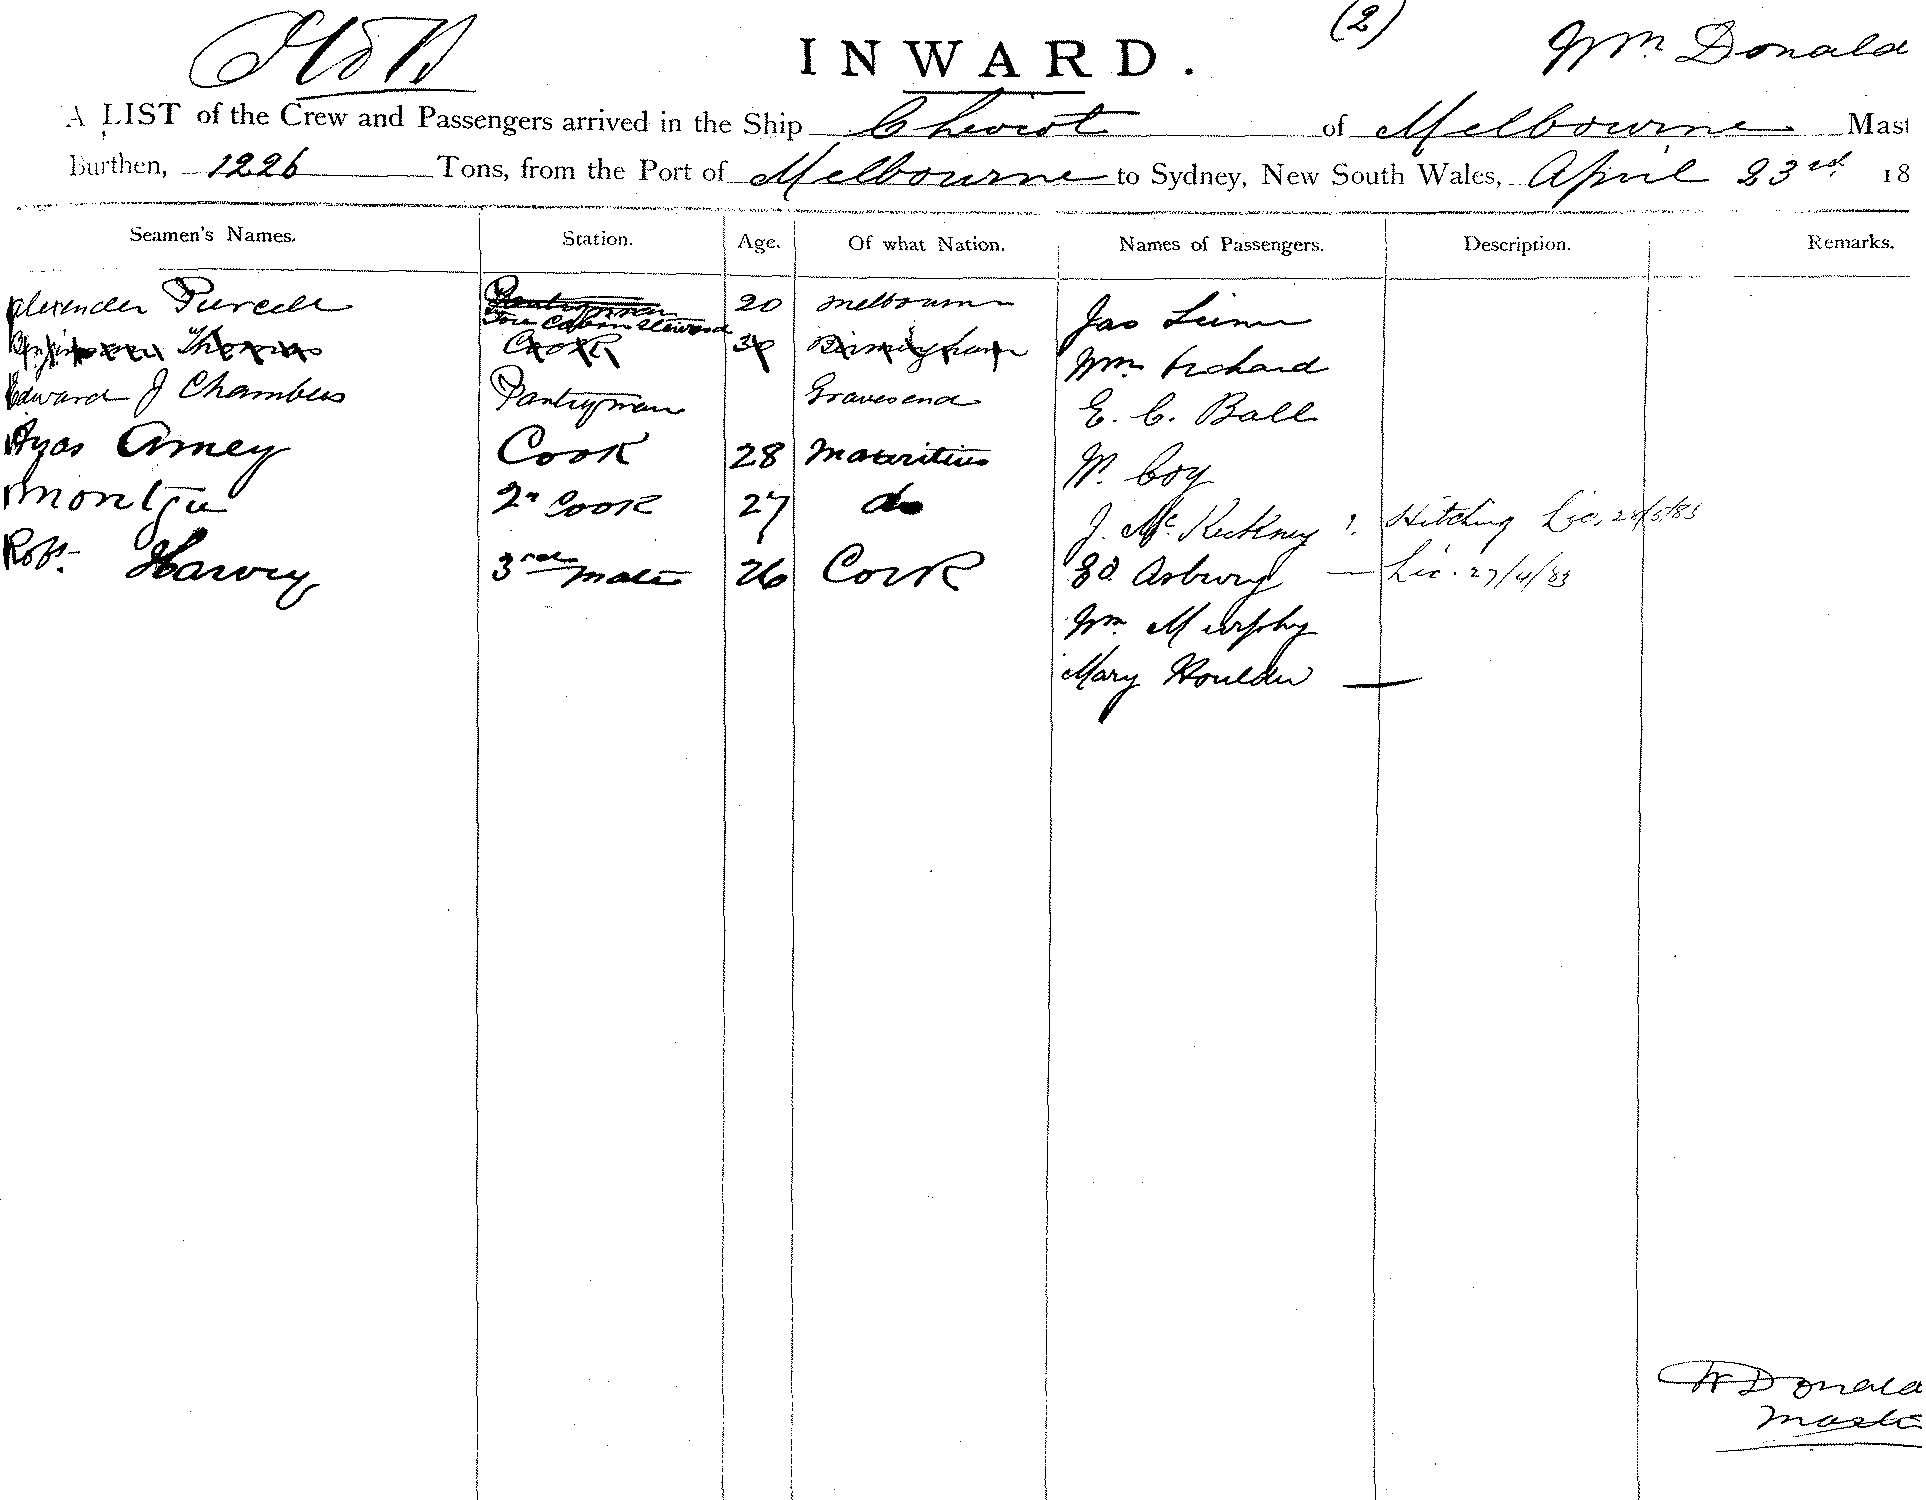 (2)
INWARD.
Wm Donald
A LIST of the Crew and Passengers arrived in the Ship Cheviot of Melbourne Mast
Burthen, 1226 Tons, from the Port of Melbourne to Sydney, New South Wales, April 23rd 18
Seamen's Names. Station. Age. Of what Nation. Names of Passengers. Description. Remarks.
Alexander Purcell Pantryman 20 Melbourne
Fore Cabin Steward Jas
Thomas Cook Birmingham Wm
Edward J Chambers Pantryman Gravesend E. C. Ball
Amey Cook 28 Mauritius W. Coy
2n Cook 27 do J. Mc ? Hitching Lic. 28/5/83
Robt Harvey 3rd Mate 26 Cork Ed. Asbury — Lic. 27/4/83
Wm Murphy
Mary Houlder —
W Donald
Maste